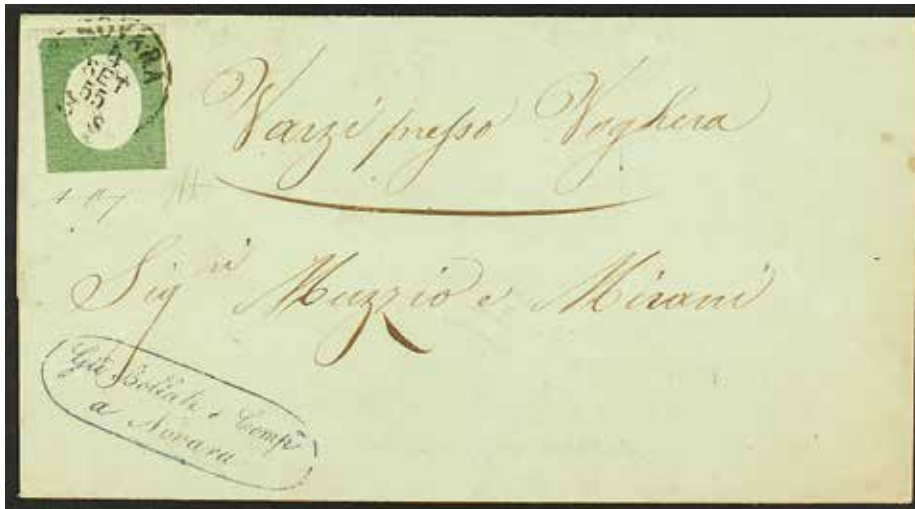 NOVARA
4
SET
55
Varzi presso Voghera
Sig.ri Muzzio e Mirani
Comp.
a Novara